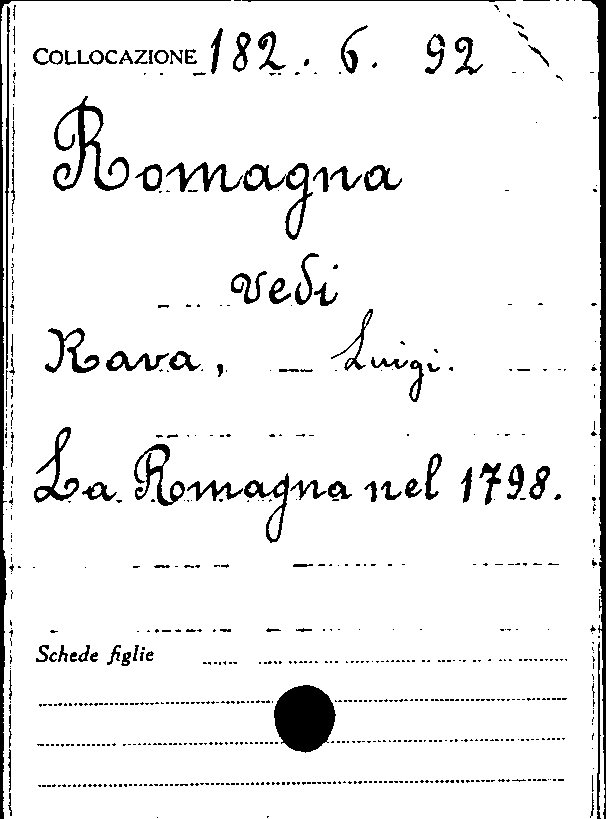 COLLOCAZIONE 182. 6. 92
Romagna
vedi
Rava, Luigi.
La Romagna nel 1798.
Schede figlie